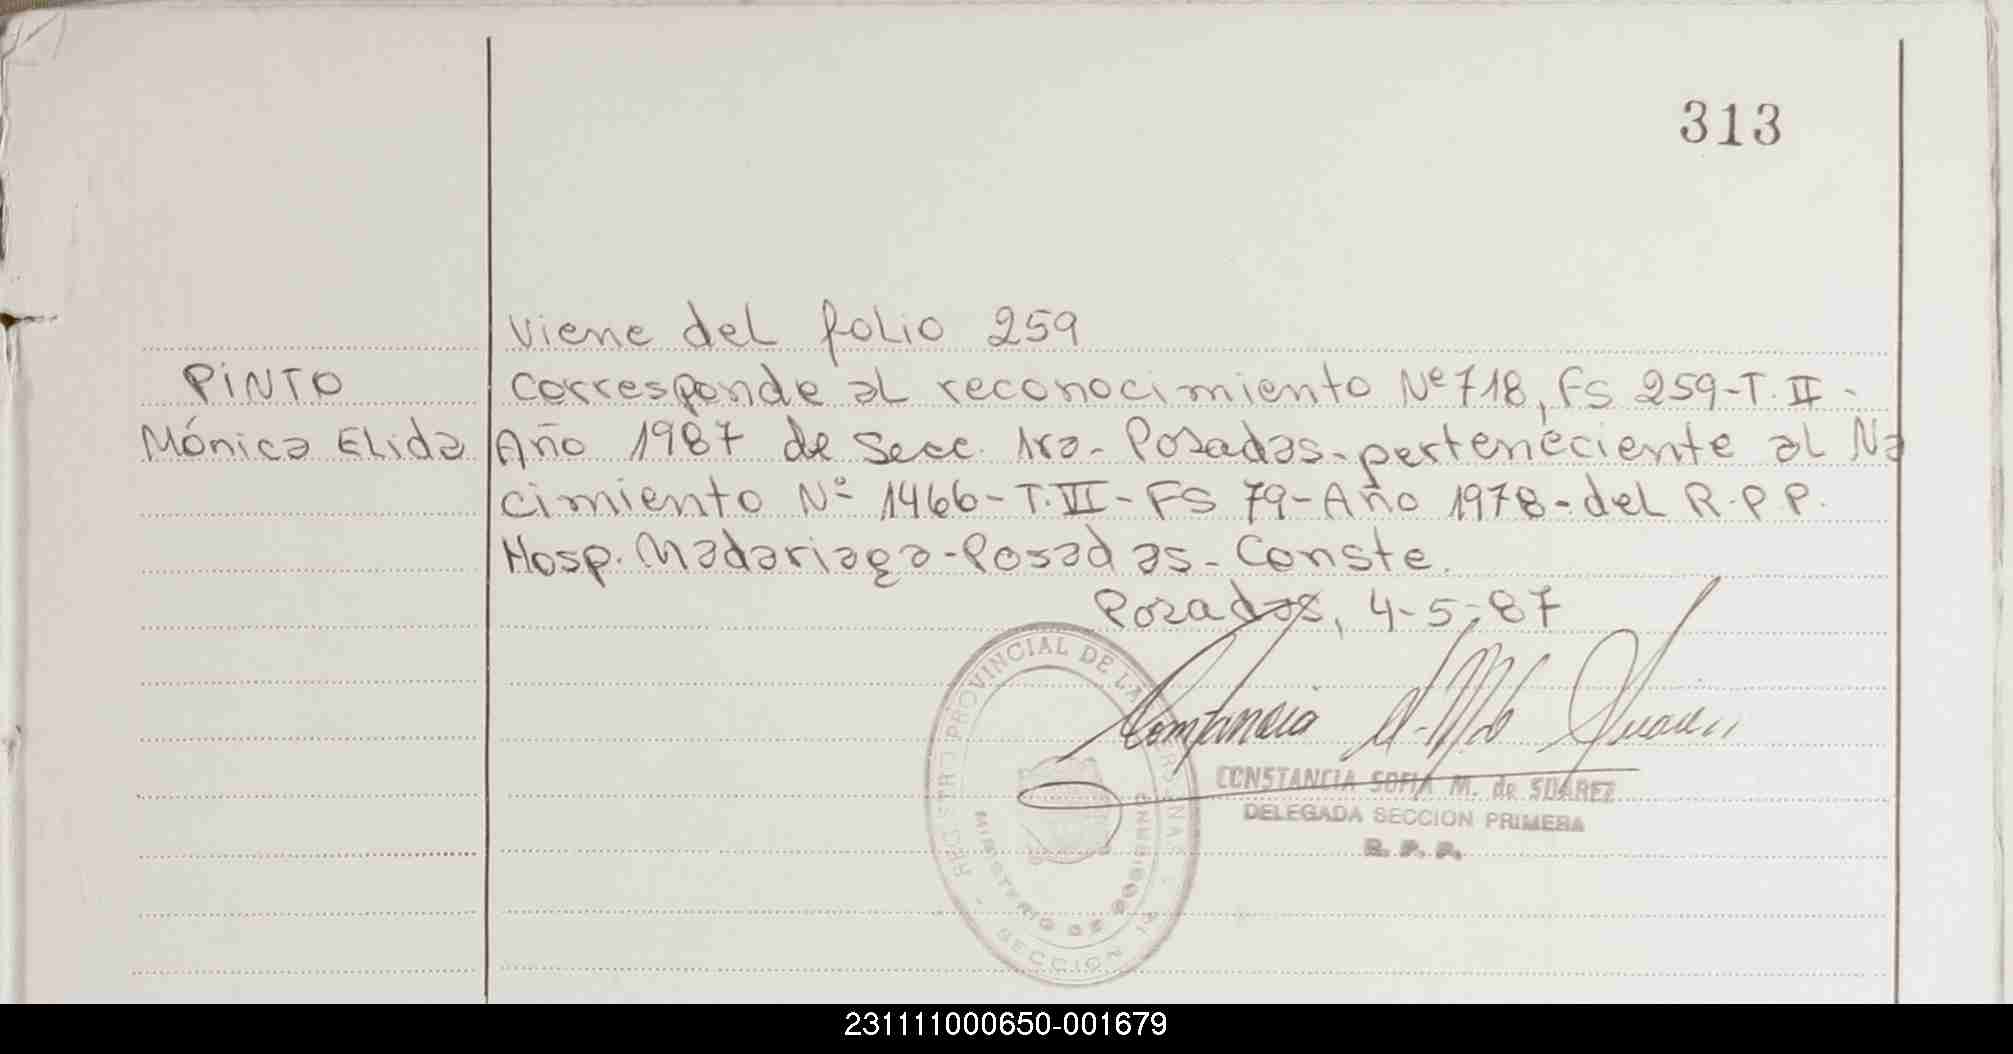 313
Viene del folio 259
PINTO
Mónica Elida
Corresponde al reconocimiento Nº 718, FS 259-T.II-
Año 1987 de Secc. 1ra- Posadas-perteneciente al Na
cimiento Nº 1466-T.VII-FS 79-Año 1978-del R.P.P.
Hosp. Madariaga-Posadas-Conste.
Posadas, 4-5-87
REGISTRO PROVINCIAL DE LAS PERSONAS
MINISTERIO DE GOBIERNO
- SECCION 1ª -
CONSTANCIA SOFIA M. de SUAREZ
DELEGADA SECCION PRIMERA
R. P. P.
231111000650-001679